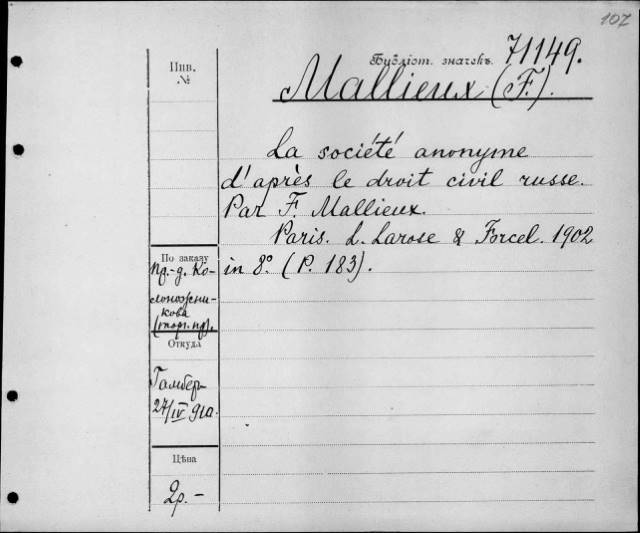 107
Инв.
№
Бубліот. значекъ 71149.
Mallieux (F.).
La société anonyme
d'après le droit civil russe.
Par F. Mallieux.
Paris. L. Larose & Forcel. 1902
in 8° (P. 183).
По заказу
пр.-д. Ко-
лонож­ни-
кова
(торг. пр).
Откуда
Гамбер
27/IV 91а.
Цѣна
2р.-